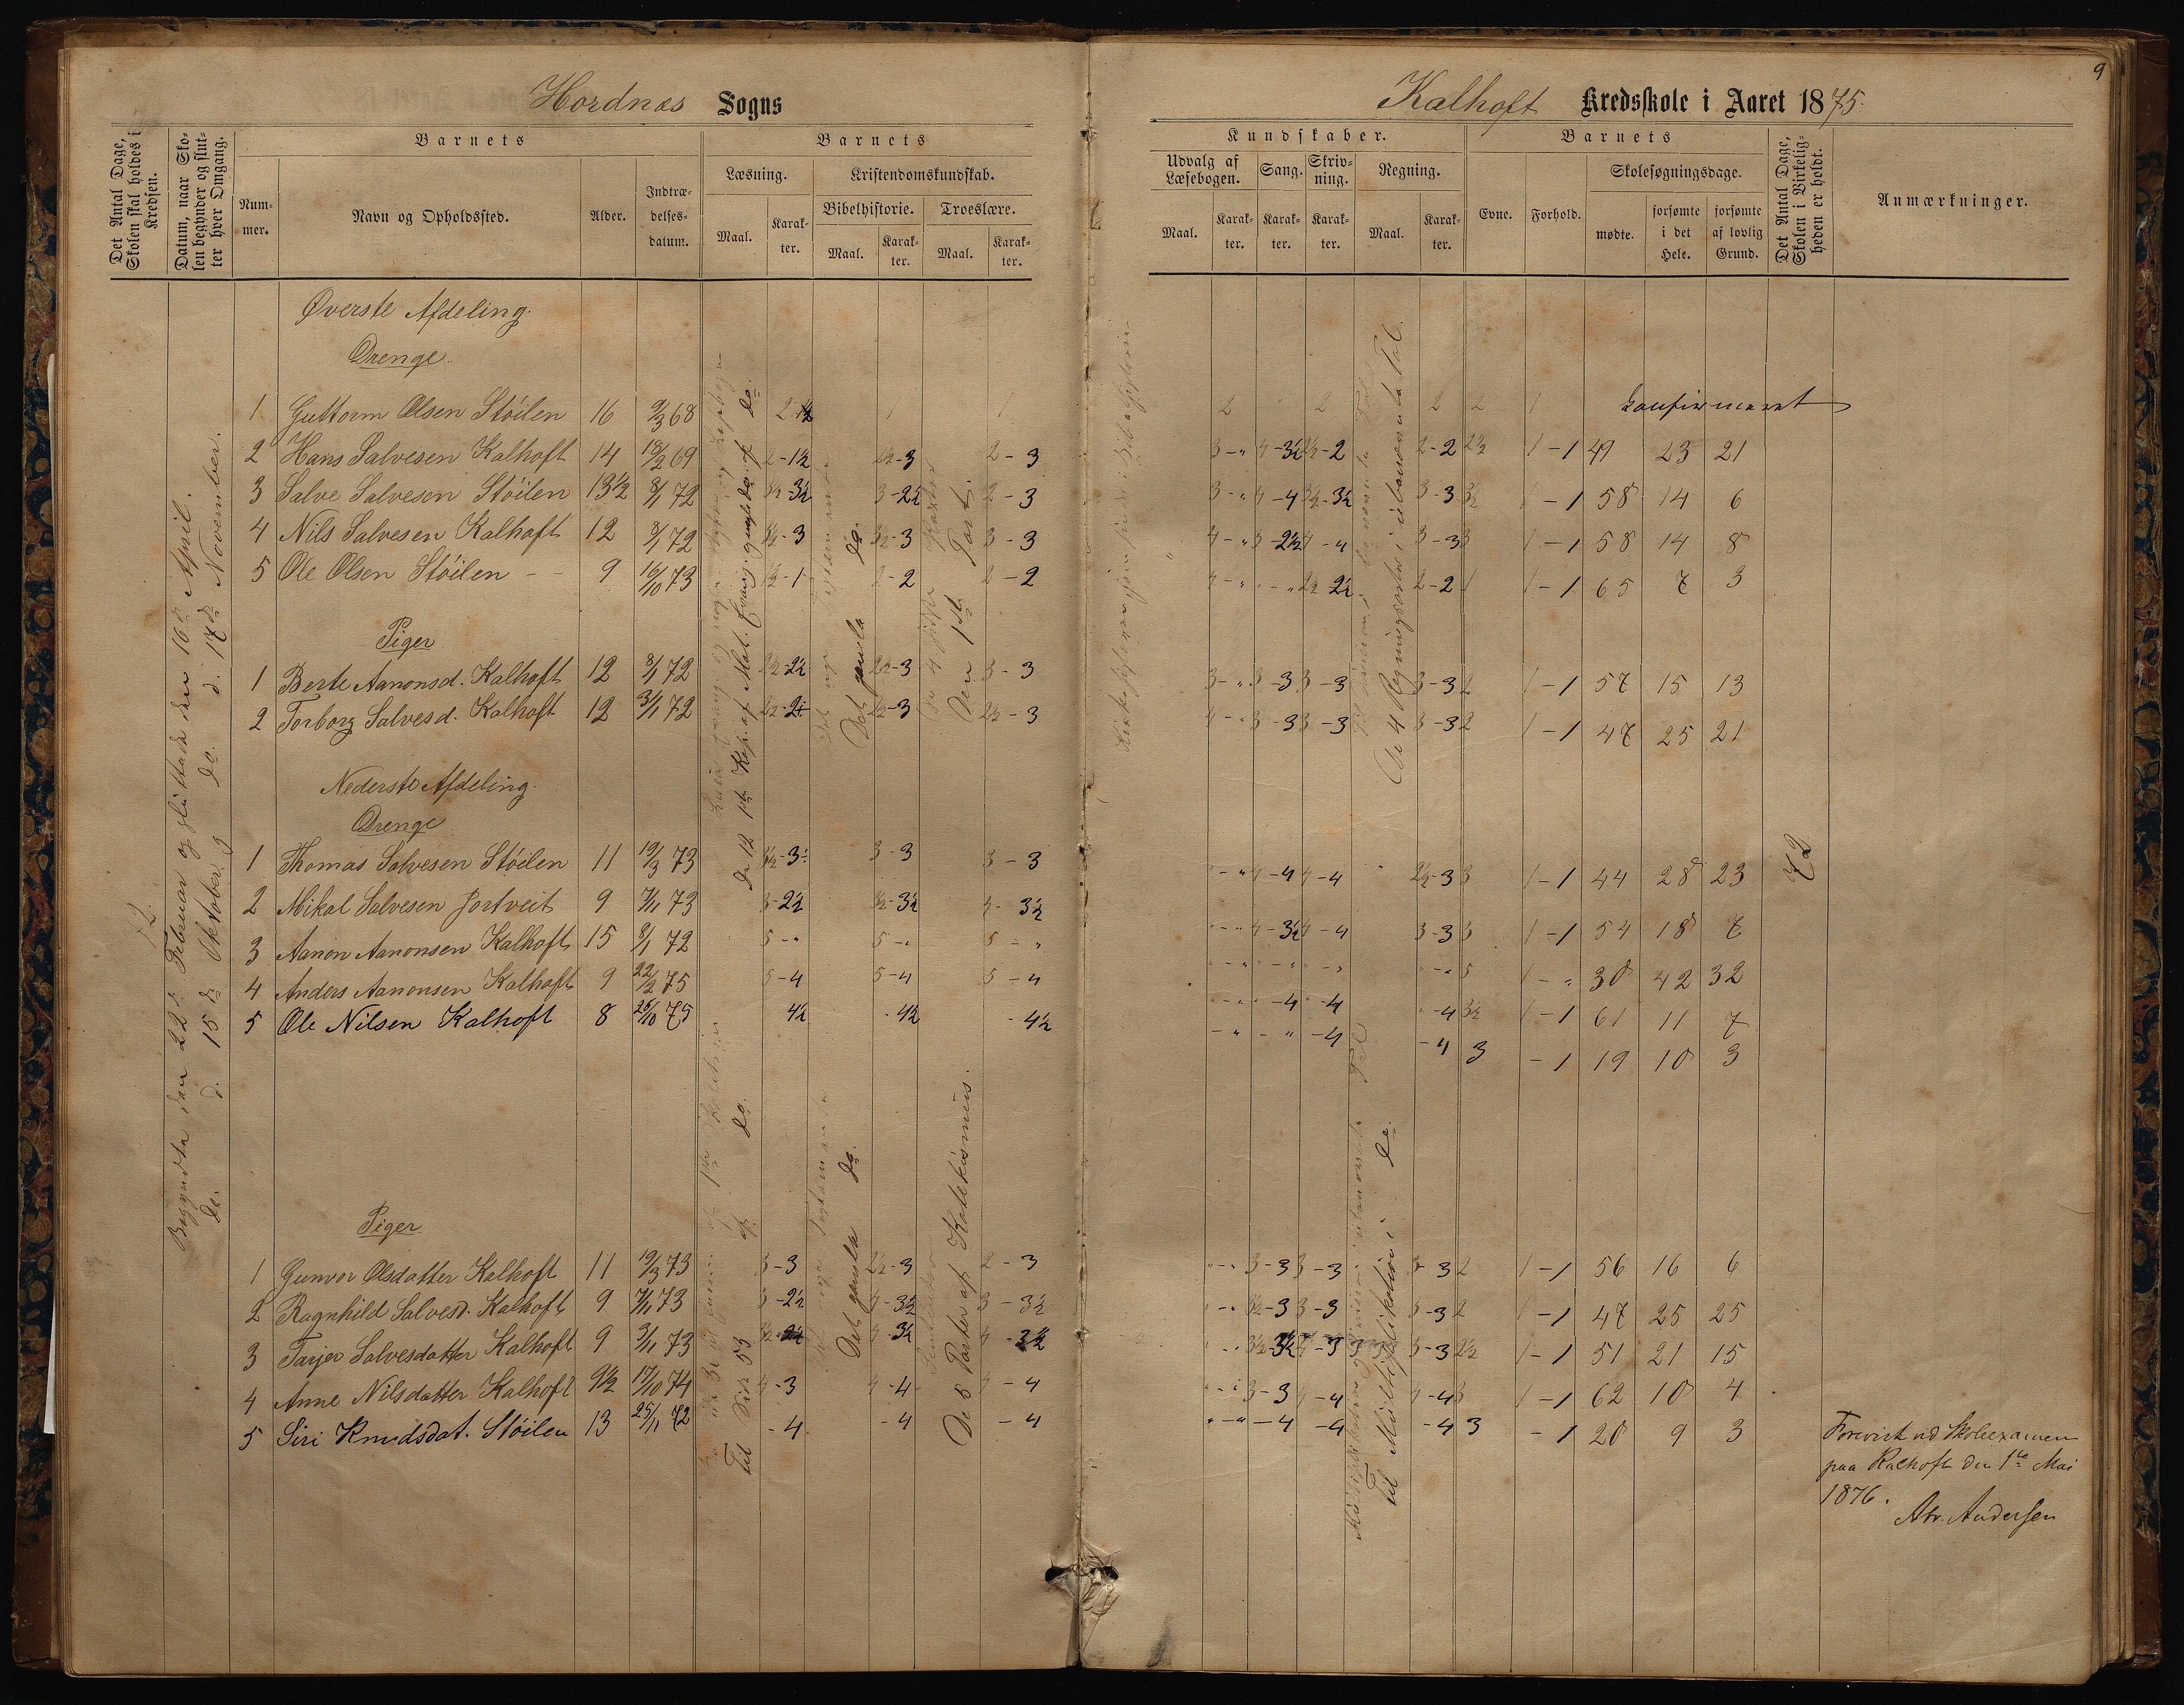 Hordnæs Sogns
Det Antal Dage, Skolen skal holdes i Kredsen.
Datum, naar Skolen begynder og slutter hver Omgang.
Barnets
Nummer.
Navn og Opholdssted.
Alder.
Indtrædelsesdatum.
Barnets
Læsning.
Maal.
Karakter.
Kristendomskundskab.
Bibelhistorie.
Maal.
Karakter.
Troeslære.
Maal.
Karakter.
72.
Begyndte den 22de Februar og sluttede den 16de April.
do. d. 15de Oktober og do. d. 17de November.
Øverste Afdeling.
Drenge.
1 Guttorm Olsen Støilen 16 9/3 68 1 1
2 Hans Salvesen Kalhoft 14 18/2 69 2-1½ 2½-3 2-3
3 Salve Salvesen Støilen 13½ 8/1 72 3½-3½ 3-2½ 2-3
4 Nils Salvesen Kalhoft 12 8/1 72 3½-3 3½-3 3-3
5 Ole Olsen Støilen -- 9 16/10 73 1½-1 2-2 2-2
Piger
1 Berte Aanonsd. Kalhoft 12 8/1 72 2½-2½ 2½-3 3-3
2 Torborg Salvesd. Kalhoft 12 3/1 72 2½-3 2½-3
Nederste Afdeling.
Drenge
1 Thomas Salvesen Støilen 11 19/3 73 3-3 3-3
2 Mikal Salvesen Jortveit 9 7/11 73 3-2½ 3½-3½ 4-3½
3 Aanon Aanonsen Kalhoft 15 8/1 72 5-" 5-" 5-"
4 Anders Aanonsen Kalhoft 9 22/2 75 5-4 5-4 5-4
5 Ole Nilsen Kalhoft 8 26/10 75 4½ -4½ -4½
Piger
1 Gunvor Olsdatter Kalhoft 11 19/3 73 3-3 2½-3 2-3
2 Ragnhild Salvesd. Kalhoft 9 7/11 73 3-2½ 4-3½ 3-3½
3 Tarjer Salvesdatter Kalhoft 9 3/11 73 4-3½ 4-3½
4 Anne Nilsdatter Kalhoft 9½ 17/10 74 4-3 4-4 4-4
5 Siri Knudsdat. Støilen 13 25/11 72 -4 -4 -4
De 12 1ste Kap. af Mat. Evang.
Det nye Testamente
Det gamle do.
De 4 første Parter
Den 1ste Part.
Til Side 53 af do.
Det gamle do.
De 5 Parter af Katekismus.
9
Kalhoft Kredsskole i Aaret 1875.
Kundskaber.
Udvalg af Læsebogen.
Maal.
Karakter.
Sang.
Karakter.
Skrivning.
Karakter.
Regning.
Maal.
Karakter.
Barnets
Evne.
Forhold.
Skolesøgningsdage.
mødte.
forsømte i det Hele.
forsømte af lovlig Grund.
Det Antal Dage, Skolen i Virkeligheden er holdt.
Anmærkninger.
2 2 2 2 1 konfirmeret
3-" 4-3½ 2½-2 2-2 2½ 1-1 49 23 21
3-" 4-4 3½-3½ 3-3 3½ 1-1 58 14 6
4-" 3-2½ 4-4 3-3 3 1-1 58 14 8
4-" "-" 2½-2½ 2-2 1 1-1 65 7 3
3-" 3-3 3-3 3-3 2 1-1 57 15 13
4-" 3-3 3-3 3-3 2 1-1 47 25 21
De 4 Regningsarter i ubenævnte Tal.
"-" 4-4 4-4 2½-3 3 1-1 44 28 23
72
"-" 4-3½ 4-4 3-3 3 1-1 54 18 7
"-" "-" "-" "-" 5 1-" 30 42 32
"-" "-4 "-4 "-4 3½ 1-1 61 11 7
-" -" -4 -4 3 -1 19 10 3
Til Multiplikation i do.
"-" 3-3 3-3 3-3 2 1-1 56 16 6
"-" 3½-3 3-3 3-3 2 1-1 47 25 25
"-" 3½-3½ 4-3 3-3 2½ 1-1 51 21 15
"-" 3-3 4-4 4-4 3 1-1 62 10 4
"-" -4 -4 -4 3 -1 20 9 3
Forevist ved Skoleexamen
paa Kalhoft den 1ste Mai
1876.
Abr. Andersen